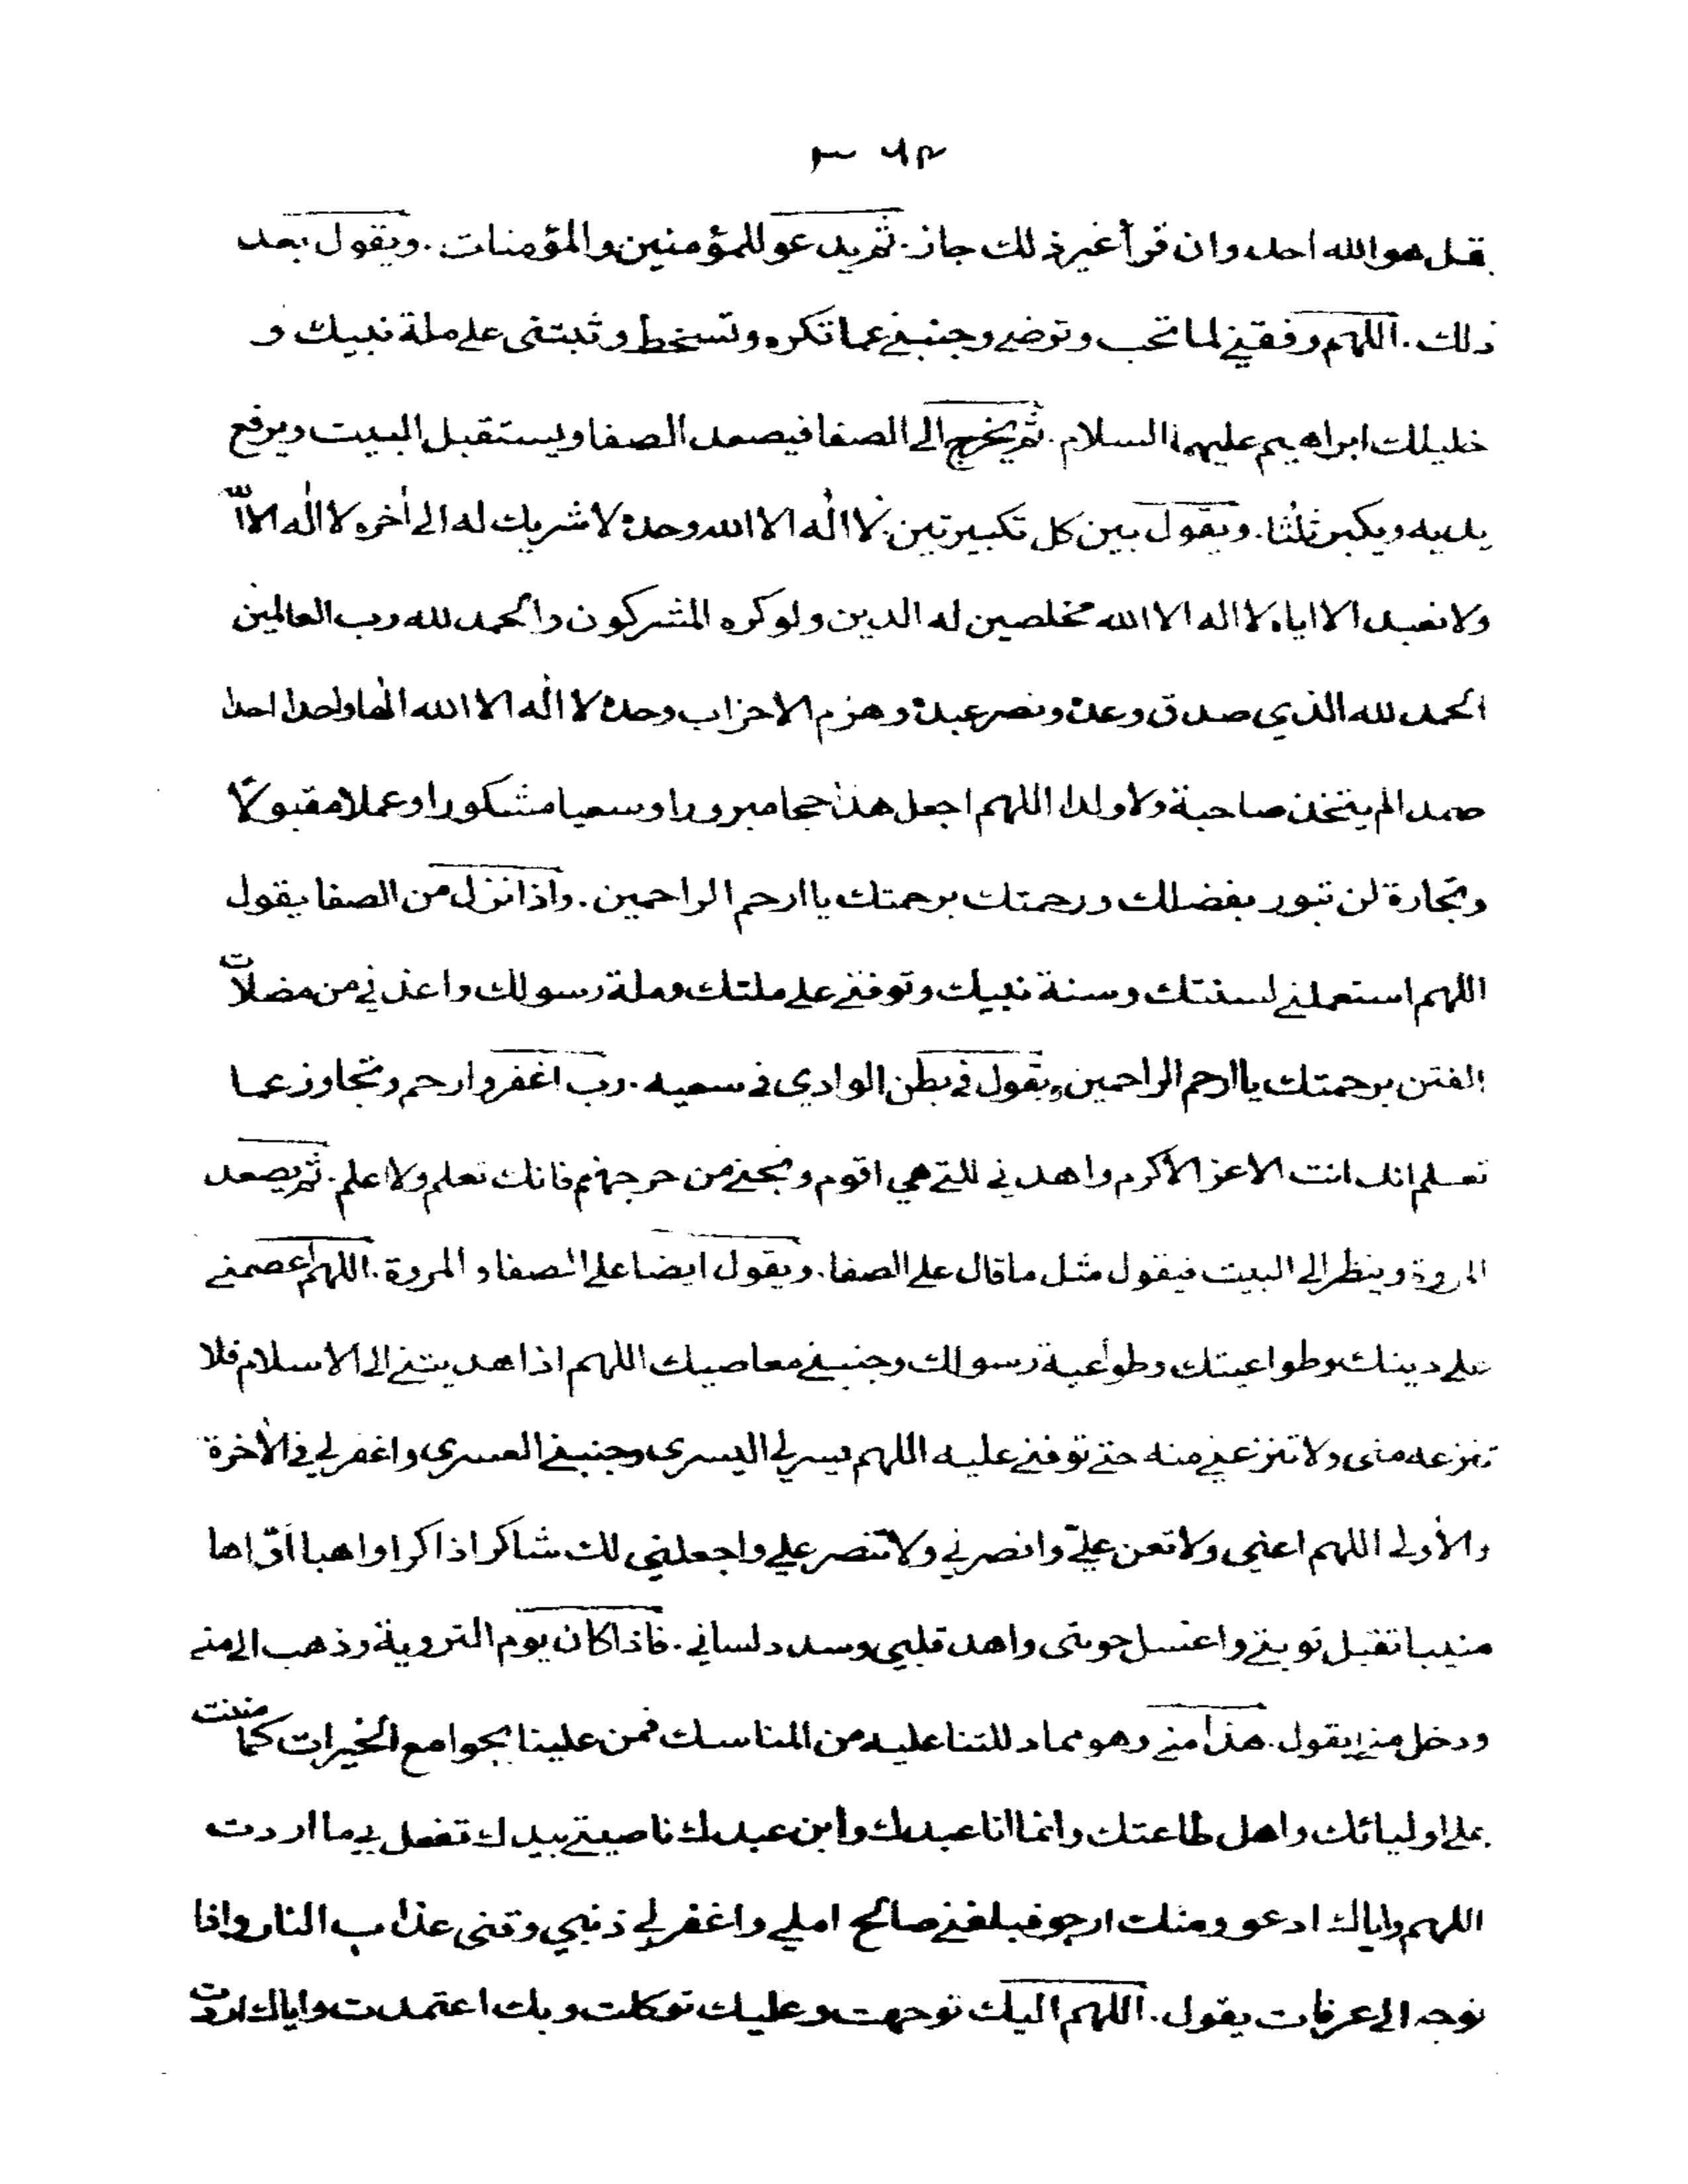 قل هو الله احد وان قرأ غير ذلك جاز. ثم يدعو للمؤمنين والمؤمنات. ويقول بعد
ذلك. اللهم وفقني لما تحب وترضى وجنبني عما تكره وتسخط وثبتنى على ملة نبيك و
خليلك ابراهيم عليهما السلام. ثم يخرج الى الصفا فيصعد الصفا ويستقبل البيت ويرفع
يديه ويكبر ثلثا. ويقول بين كل تكبيرتين. لا اله الا الله وحده لا شريك له الى أخره لا اله الا الله
ولا نعبد الا اياه لا اله الا الله مخلصين له الدين ولو كره المشركون والحمد لله رب العالمين
الحمد لله الذي صدق وعده ونصر عبده وهزم الاحزاب وحده لا اله الا الله الها واحدا احدا
صمدا لم يتخذ صاحبة ولا ولدا اللهم اجعل هذا حجا مبرورا وسعيا مشكورا وعملا مقبولا
وتجارة لن تبور بفضلك ورحمتك برحمتك يا ارحم الراحمين. واذا نزل من الصفا يقول
اللهم استعملني لسنتك وسنة نبيك وتوفني على ملتك وملة رسولك واعذني من مضلات
الفتن برحمتك يا ارحم الراحمين ويقول في بطن الوادي في سعيه. رب اغفر وارحم وتجاوز عما
تعلم انك انت الاعز الاكرم واهدني للتي هي اقوم ونجني من حر جهنم فانك تعلم ولا اعلم. ثم يصعد
المروة وينظر الى البيت فيقول مثل ما قال على الصفا. ويقول ايضا على الصفا و المروة. اللهم اعصمني
على دينك وطواعيتك وطواعية رسولك وجنبني معاصيك اللهم اذا هديتني الى الاسلام فلا
تنزعه منى ولا تنزعني منه حتى توفني عليه اللهم يسر لي اليسرى وجنبني العسرى واغفر لي في الأخرة
والأولى اللهم اعنى ولا تعن عليّ وانصرني ولا تنصر علي واجعلني لك شاكرا ذاكرا واهبا أوّاها
منيبا تقبل توبتي واغسل حوبتى واهد قلبي وسدد لساني. فاذا كان يوم التروية وذهب الى منى
ودخل منى يقول. هذا منى وهو مما دللتنا عليه من المناسك فمن علينا بجوامع الخيرات كما مننت
على اوليائك واهل طاعتك وانما انا عبدك وابن عبدك ناصيتي بيدك تفعل بي ما اردت
اللهم واياك ادعو ومنك ارجو فبلغني صالح املي واغفر لي ذنبي وقنى عذاب النار واذا
توجه الى عرفات يقول. اللهم اليك توجهت وعليك توكلت وبك اعتمدت واياك اردت